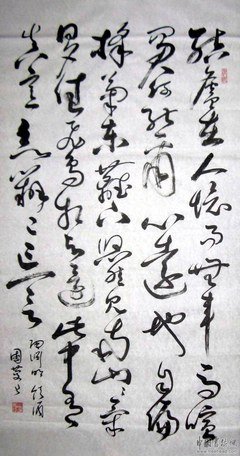 结庐在人境而无车马喧
问君何能尔心远地自偏
採菊东篱下悠然见南山山气
日夕佳飞鸟相与还此中有
真意欲辨已忘言
陶渊明饮酒